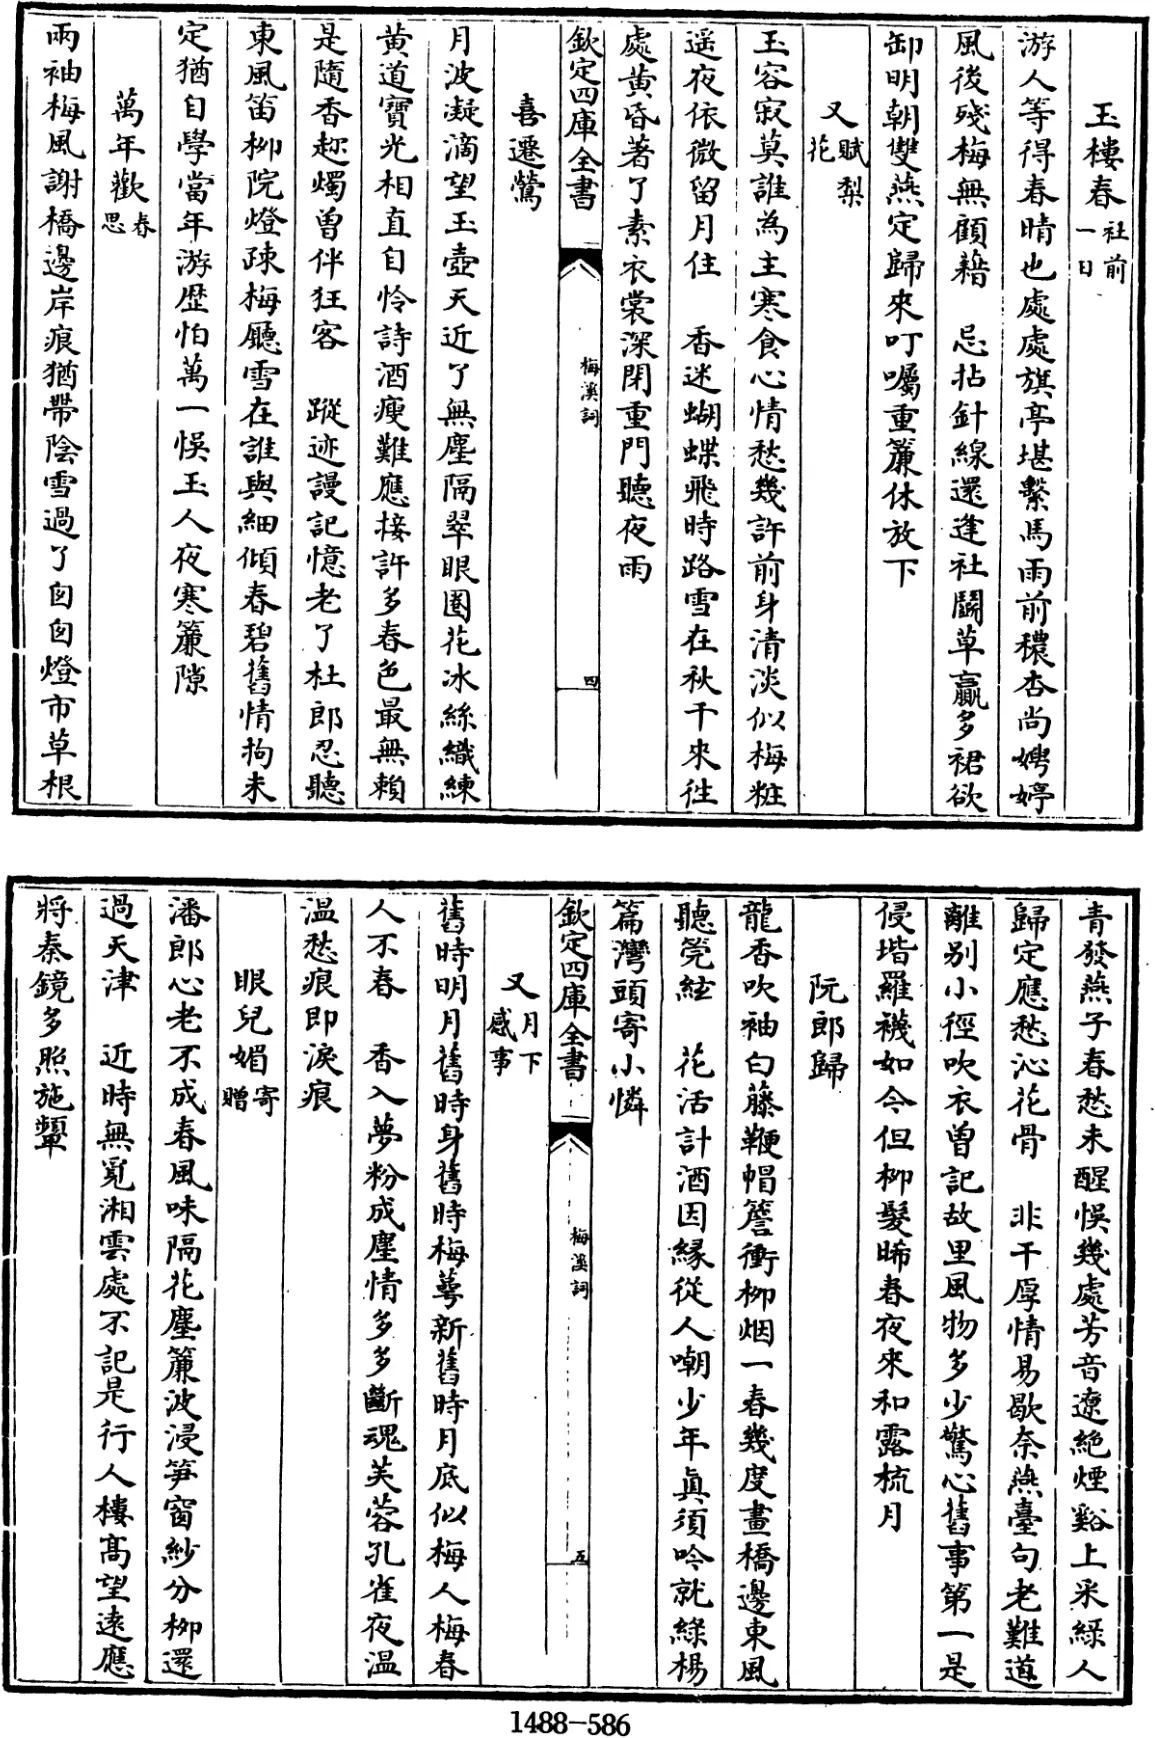 玉樓春社前一日
游人等得春晴也處處旗亭堪繫馬雨前穠杏尚娉婷
風後殘梅無顧藉　忌拈針線還逢社鬭草贏多裙欲
卸明朝雙燕定歸來叮囑重簾休放下
又賦梨花
玉容寂莫誰為主寒食心情愁幾許前身清淡似梅粧
遥夜依微留月住　香迷蝴蝶飛時路雪在秋千來徃
處黄昏著了素衣裳深閉重門聽夜雨
欽定四庫全書
梅溪詞
四
喜遷鶯
月波凝滴望玉壺天近了無塵隔翠眼圈花冰絲織練
黄道寶光相直自怜詩酒瘦難應接許多春色最無賴
是隨香趂燭曽伴狂客　蹤迹謾記憶老了杜郎忍聽
東風笛栁院燈疎梅廳雪在誰與細傾春碧舊情拘未
定猶自學當年游歴怕萬一悞玉人夜寒簾隙
萬年歡春思
兩袖梅風謝橋邊岸痕猶帶陰雪過了囪囪燈市草根
青發燕子春愁未醒悞幾處芳音遼絶煙谿上采緑人
歸定應愁沁花骨　非干厚情易歇奈燕臺句老難道
離别小徑吹衣曽記故里風物多少驚心舊事第一是
侵堦羅襪如今但栁髮晞春夜來和露梳月
阮郎歸
龍香吹袖白藤鞭帽簷衝栁烟一春幾度畫橋邊東風
聽筦絃　花活計酒因縁從人嘲少年真須吟就緑楊
篇灣頭寄小憐
欽定四庫全書
梅溪詞
五
又月下感事
舊時明月舊時身舊時梅萼新舊時月底似梅人梅春
人不春　香入夢粉成塵情多多斷魂芙蓉孔雀夜温
温愁痕即淚痕
眼兒媚寄贈
潘郎心老不成春風味隔花塵簾波浸笋窗紗分栁還
過天津　近時無覓湘雲處不記是行人樓髙望逺應
將秦鏡多照施顰
1488-586